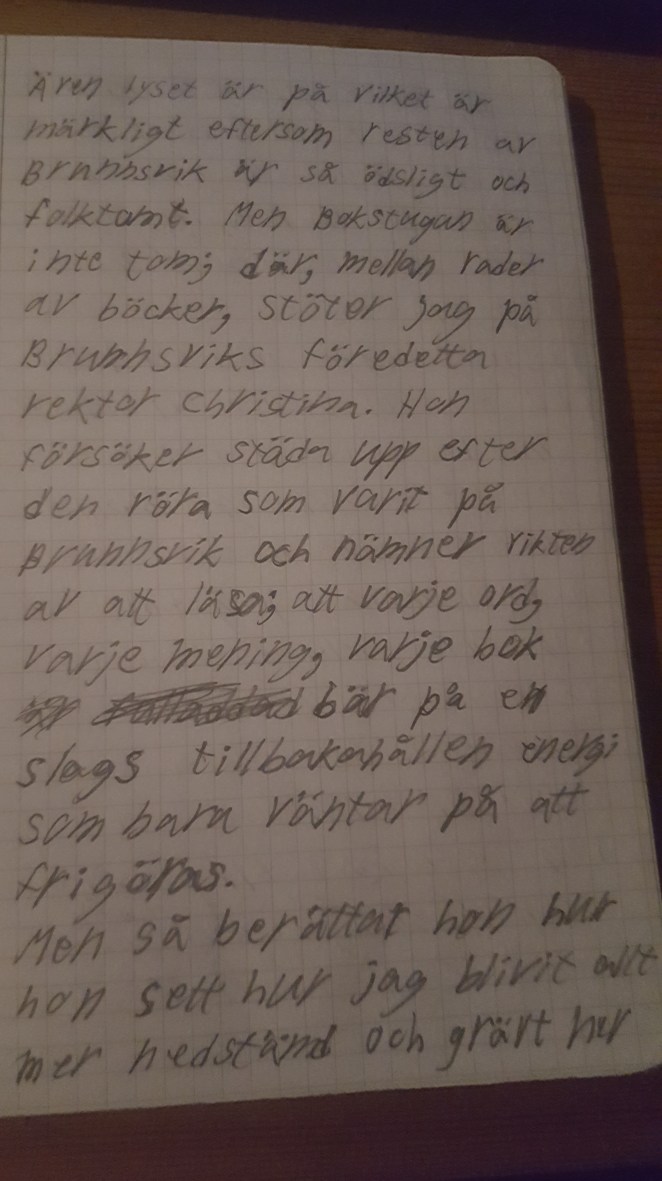 Även lyset är på vilket är
märkligt eftersom resten av
Brunnsvik är så ödsligt och
folktomt. Men Bokstugan är
inte tom; där, mellan rader
av böcker, stöter jag på
Brunnsviks föredetta
rektor Christina. Hon
försöker städa upp efter
den röra som varit på
Brunnsvik och nämner vikten
av att läsa; att varje ord,
varje mening, varje bok
bär på en
slags tillbakahållen energi
som bara väntar på att
frigöras.
Men så berättar hon hur
hon sett hur jag blivit allt
mer nedstämd och grävt ner